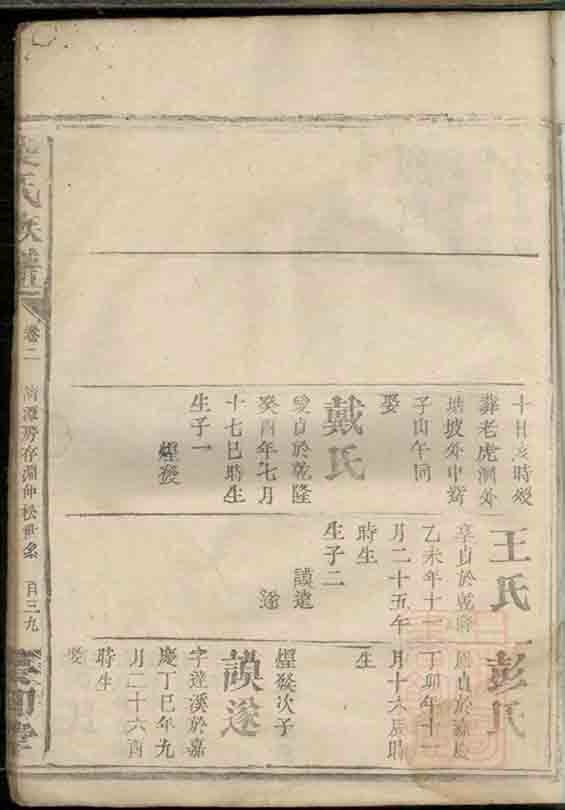 十日亥時歿
葬老虎洞外
塘坡外申對
子山午向
娶
戴氏
受貞於乾隆
癸酉年七月
十七巳時生
生子一
煌發
王氏
享貞於乾隆
乙未年十一
月二十五午
時生
生子二
謨進
遂
彭氏
貞於嘉慶
丁卯年十一
月十六辰時
生
煌發次子
謨遂
字達溪於嘉
慶丁巳年九
月二十六酉
時生
娶
氏族譜
卷二
房存淵仲松世系
百三九